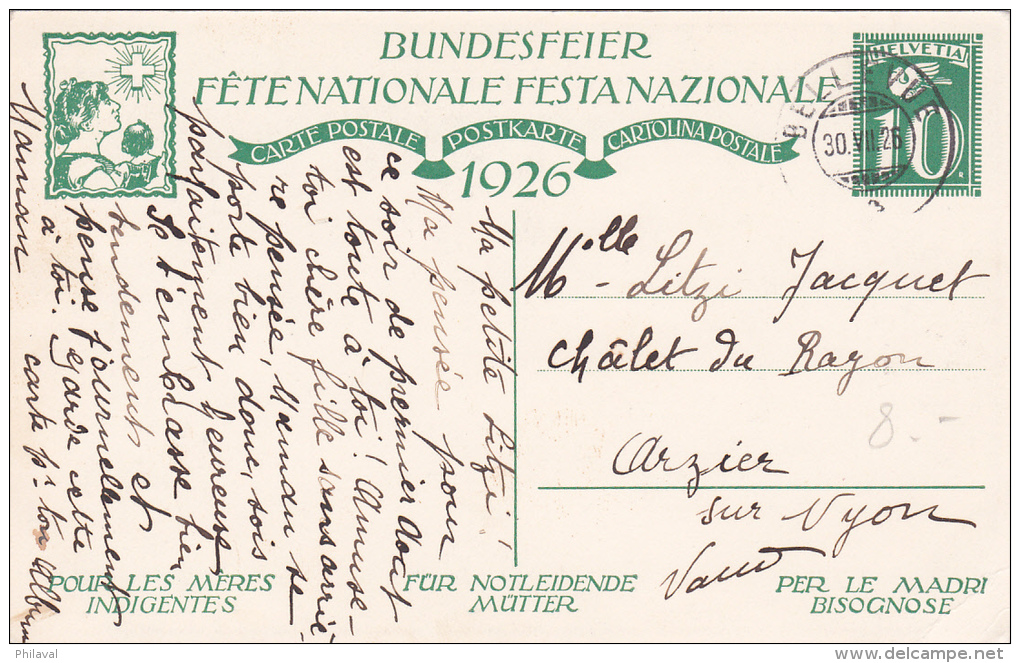 BUNDESFEIER
FÊTE NATIONALE FESTA NAZIONALE
CARTE POSTALE POSTKARTE CARTOLINA POSTALE
1926
HELVETIA
10
BELLEVUE
30.VII.26
Ma petite Litzi!
Ma pensée pour
ce soir de premier Août
est toute à toi! Amuse-
toi chère fille sans arriè-
re pensée, Maman se
porte bien donc, sois
parfaitement heureuse
Je t'embrasse bien
tendement et
pense journellement
à toi. garde cette
carte pr. ton Album
Maman
Mlle - Litzi Jacquet
Châlet du Rayon
Arzier
sur Nyon
Vaud
8.-
POUR LES MÈRES
INDIGENTES
FÜR NOTLEIDENDE
MÜTTER
PER LE MADRI
BISOGNOSE
Philaval